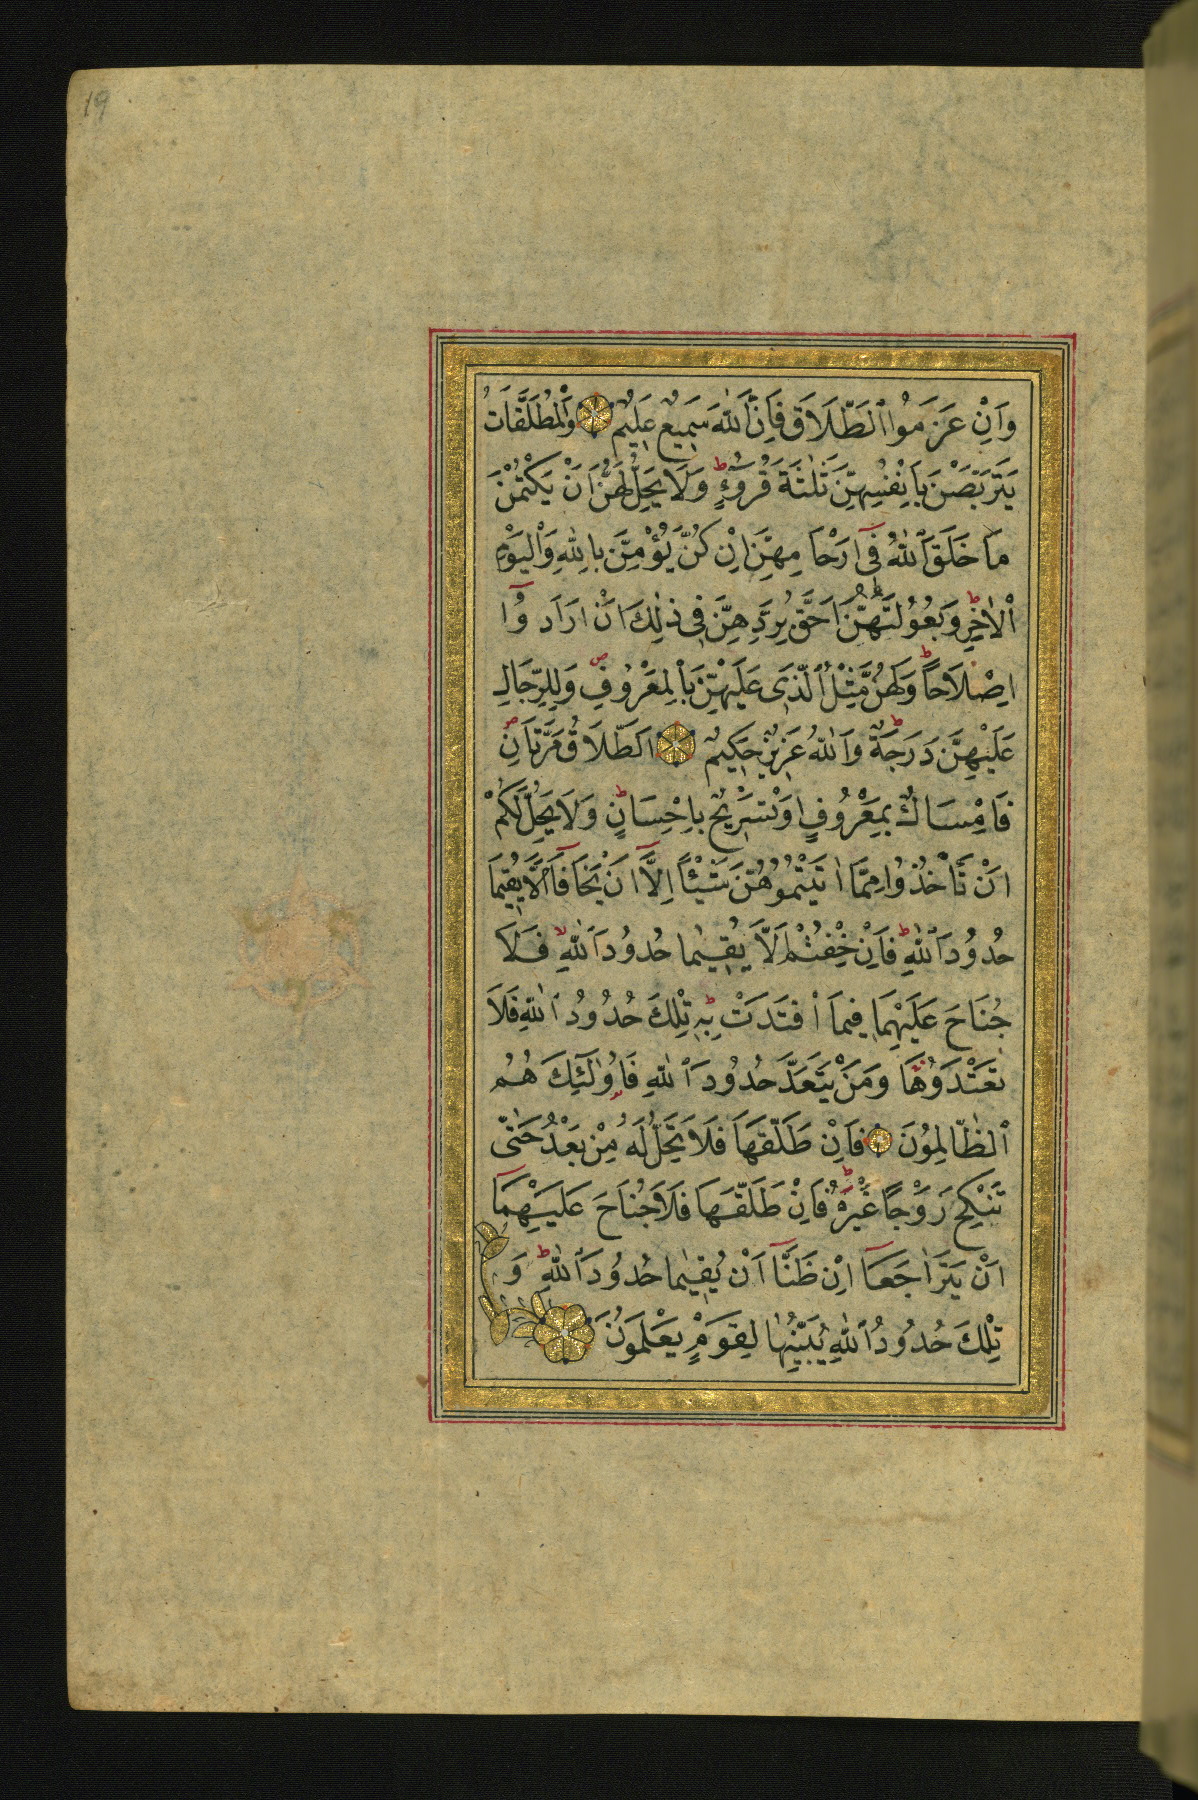 19
وَاِنْ عَزَمُوا ٱلطَّلَاقَ فَاِنَّ ٱللّٰهَ سَمِيعٌ عَلِيمٌ وَٱلْمُطَلَّقَاتُ
يَتَرَبَّصْنَ بِاَنْفُسِهِنَّ ثَلٰثَةَ قُرُوٓءٍ ط وَلَا يَحِلُّ لَهُنَّ اَنْ يَكْتُمْنَ
مَا خَلَقَ ٱللّٰهُ فِىٓ اَرْحَامِهِنَّ اِنْ كُنَّ يُؤْمِنَّ بِاللّٰهِ وَٱلْيَوْمِ
ٱلْاٰخِرِ ط وَبُعُولَتُهُنَّ اَحَقُّ بِرَدِّهِنَّ فِى ذٰلِكَ اِنْ اَرَادُوٓا
اِصْلَاحًا ط وَلَهُنَّ مِثْلُ ٱلَّذِى عَلَيْهِنَّ بِٱلْمَعْرُوفِ ص وَلِلرِّجَالِ
عَلَيْهِنَّ دَرَجَةٌ ط وَٱللّٰهُ عَزِيزٌ حَكِيمٌ اَلطَّلَاقُ مَرَّتَانِ ص
فَاِمْسَاكٌ بِمَعْرُوفٍ اَوْ تَسْرِيحٌ بِاِحْسَانٍ ط وَلَا يَحِلُّ لَكُمْ
اَنْ تَأْخُذُوا مِمَّٓا اٰتَيْتُمُوهُنَّ شَيْـًٔا اِلَّٓا اَنْ يَخَافَٓا اَلَّا يُقِيمَا
حُدُودَ ٱللّٰهِ ط فَاِنْ خِفْتُمْ اَلَّا يُقِيمَا حُدُودَ ٱللّٰهِ لا فَلَا
جُنَاحَ عَلَيْهِمَا فِيمَا ٱفْتَدَتْ بِهِ ط تِلْكَ حُدُودُ ٱللّٰهِ فَلَا
تَعْتَدُوهَا وَمَنْ يَتَعَدَّ حُدُودَ ٱللّٰهِ فَاُولٰٓئِكَ هُمُ
ٱلظَّالِمُونَ فَاِنْ طَلَّقَهَا فَلَا تَحِلُّ لَهُ مِنْ بَعْدُ حَتّٰى
تَنْكِحَ زَوْجًا غَيْرَهُ ط فَاِنْ طَلَّقَهَا فَلَا جُنَاحَ عَلَيْهِمَٓا
اَنْ يَتَرَاجَعَٓا اِنْ ظَنَّٓا اَنْ يُقِيمَا حُدُودَ ٱللّٰهِ ط وَ
تِلْكَ حُدُودُ ٱللّٰهِ يُبَيِّنُهَا لِقَوْمٍ يَعْلَمُونَ